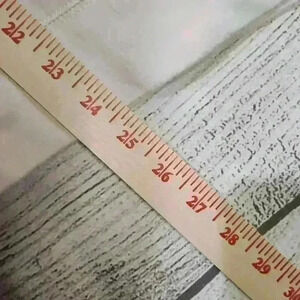 22 23 24 25 26 27 28 29